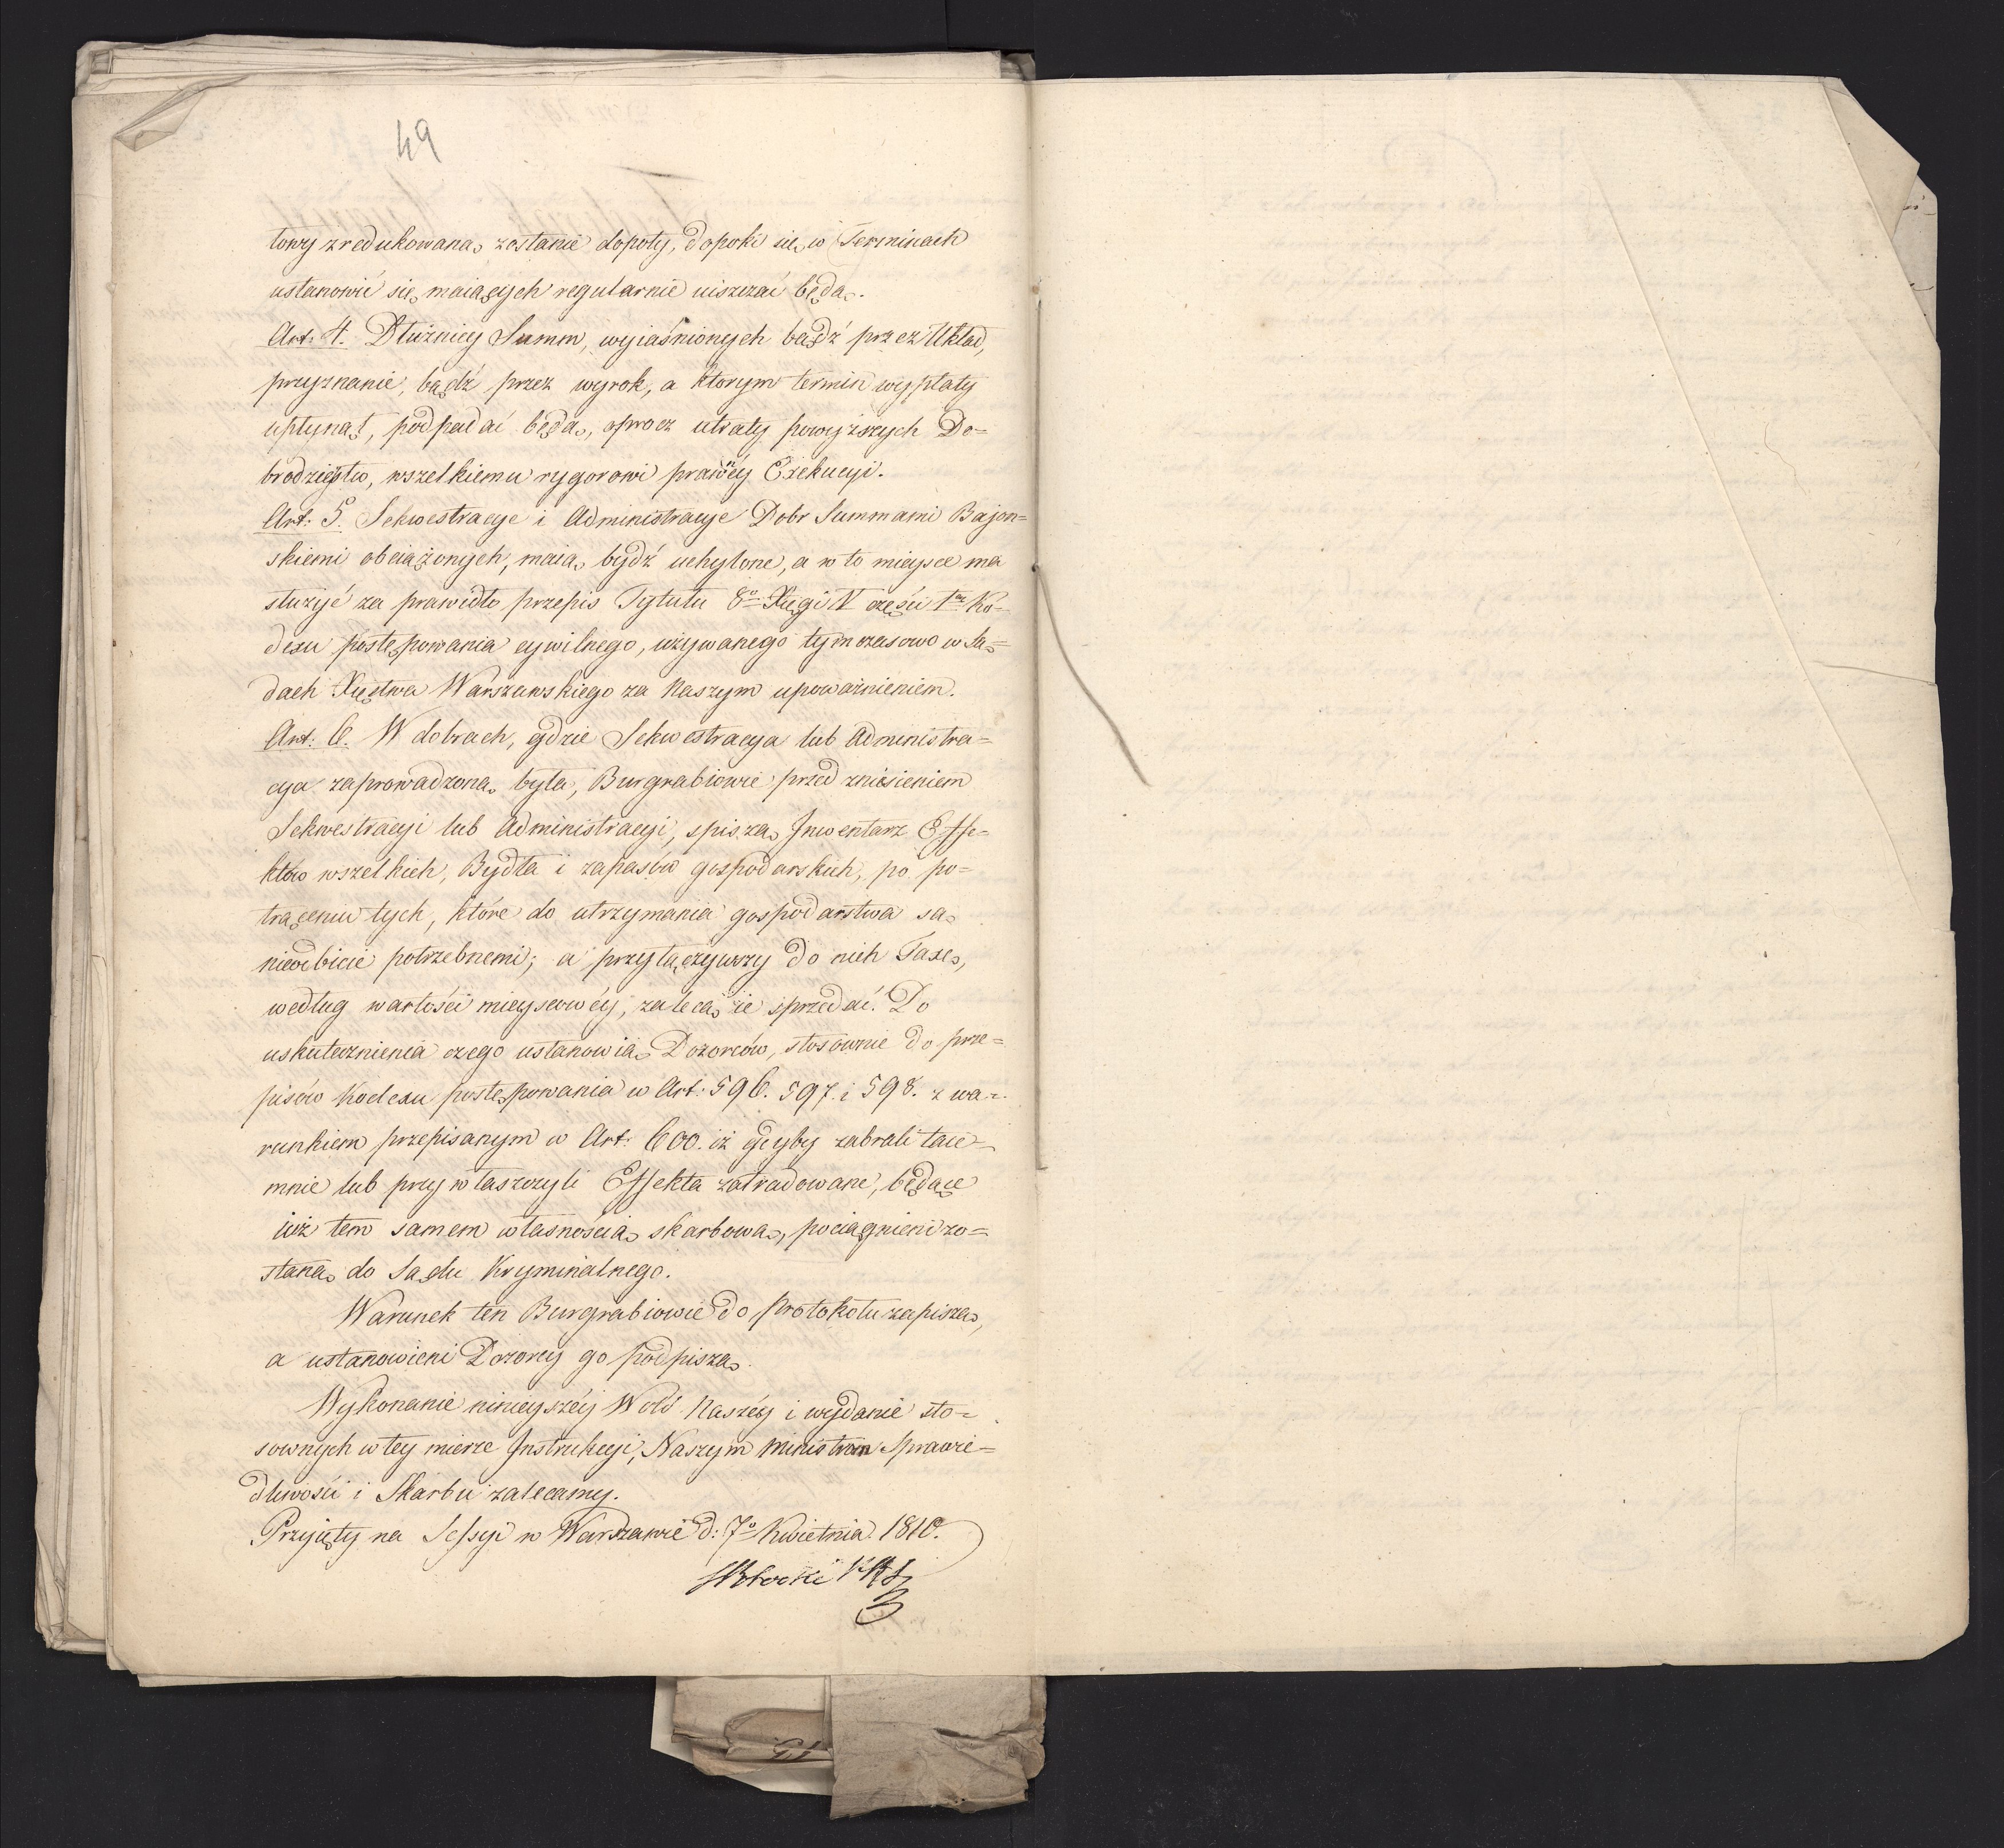 49
towy zredukowaną zostanie dopoty, dopoki się w Terminach
ustanowić się maiących regularnie uiszczać będą.
Art: 4. Dłużnicy Summ, wyiaśnionych bądź przez Układ,
przyznanie, bądź przez wyrok, a ktorym termin wypłaty
upłynął, podpadać będą, oprocz utraty powyższych Do=
brodzieystw, wszelkiemu rygorowi prawnéy Exekucyi.
Art: 5. Sekwestracye i Administracye Dobr Summami Bajon=
skiemi obciążonych, maią bydź uchylone, a w to mieysce ma
służyć za prawidło przepis Tytułu 8o Xięgi V części 1éy Ko=
dexu postępowania cywilnego, używanego tymczasowo w Są=
dach Xięstwa Warszawskiego za Naszym upoważnieniem.
Art: 6. W dobrach, gdzie Sekwestracya lub Administra=
cya zaprowadzoną była, Burgrabiowie przed zniesieniem
Sekwestracyi lub Administracyi, spiszą Inwentarz Effe=
któw wszelkich, Bydła i zapasów gospodarskich, po po=
trąceniu tych, które do utrzymania gospodarstwa są
nieodbicie potrzebnemi; a przyłączywszy do nich Taxę,
według wartości mieyscowéy, zalecą ie sprzedać. Do
uskutecznienia czego ustanowią Dozorców, stosownie do prze=
pisów Kodexu postępowania w Art: 596. 597. i 598. z wa=
runkiem przepisanym w Art: 600. iż gdyby zabrali taie=
mnie lub przywłaszczyli Effekta zatradowane, będące
iuż tem samem własnością skarbową, pociągnieni zo=
staną do Sądu Kryminalnego.
Warunek ten Burgrabiowie do Protokołu zapiszą,
a ustanowieni Dozorcy go podpiszą.
Wykonanie ninieyszéy Woli Naszéy i wydanie sto=
sownych w tey mierze Instrukcyi, Naszym Ministrom Sprawie=
dliwości i Skarbu zalecamy.
Przyięty na Sessyi w Warszawie d: 7o Kwietnia 1810.
SPotocki